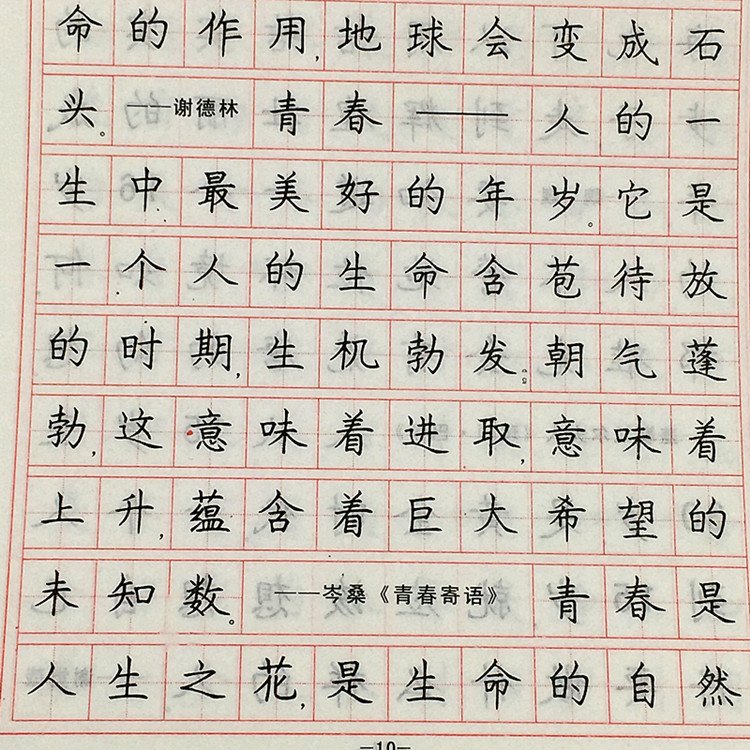 命的作用,地球会变成石
头。——谢德林 青春——人的一
生中最美好的年岁。它是
一个人的生命含苞待放
的时期,生机勃发。朝气蓬
勃,这意味着进取,意味着
上升,蕴含着巨大希望的
未知数。——岑桑《青春寄语》 青春是
人生之花,是生命的自然
—10—